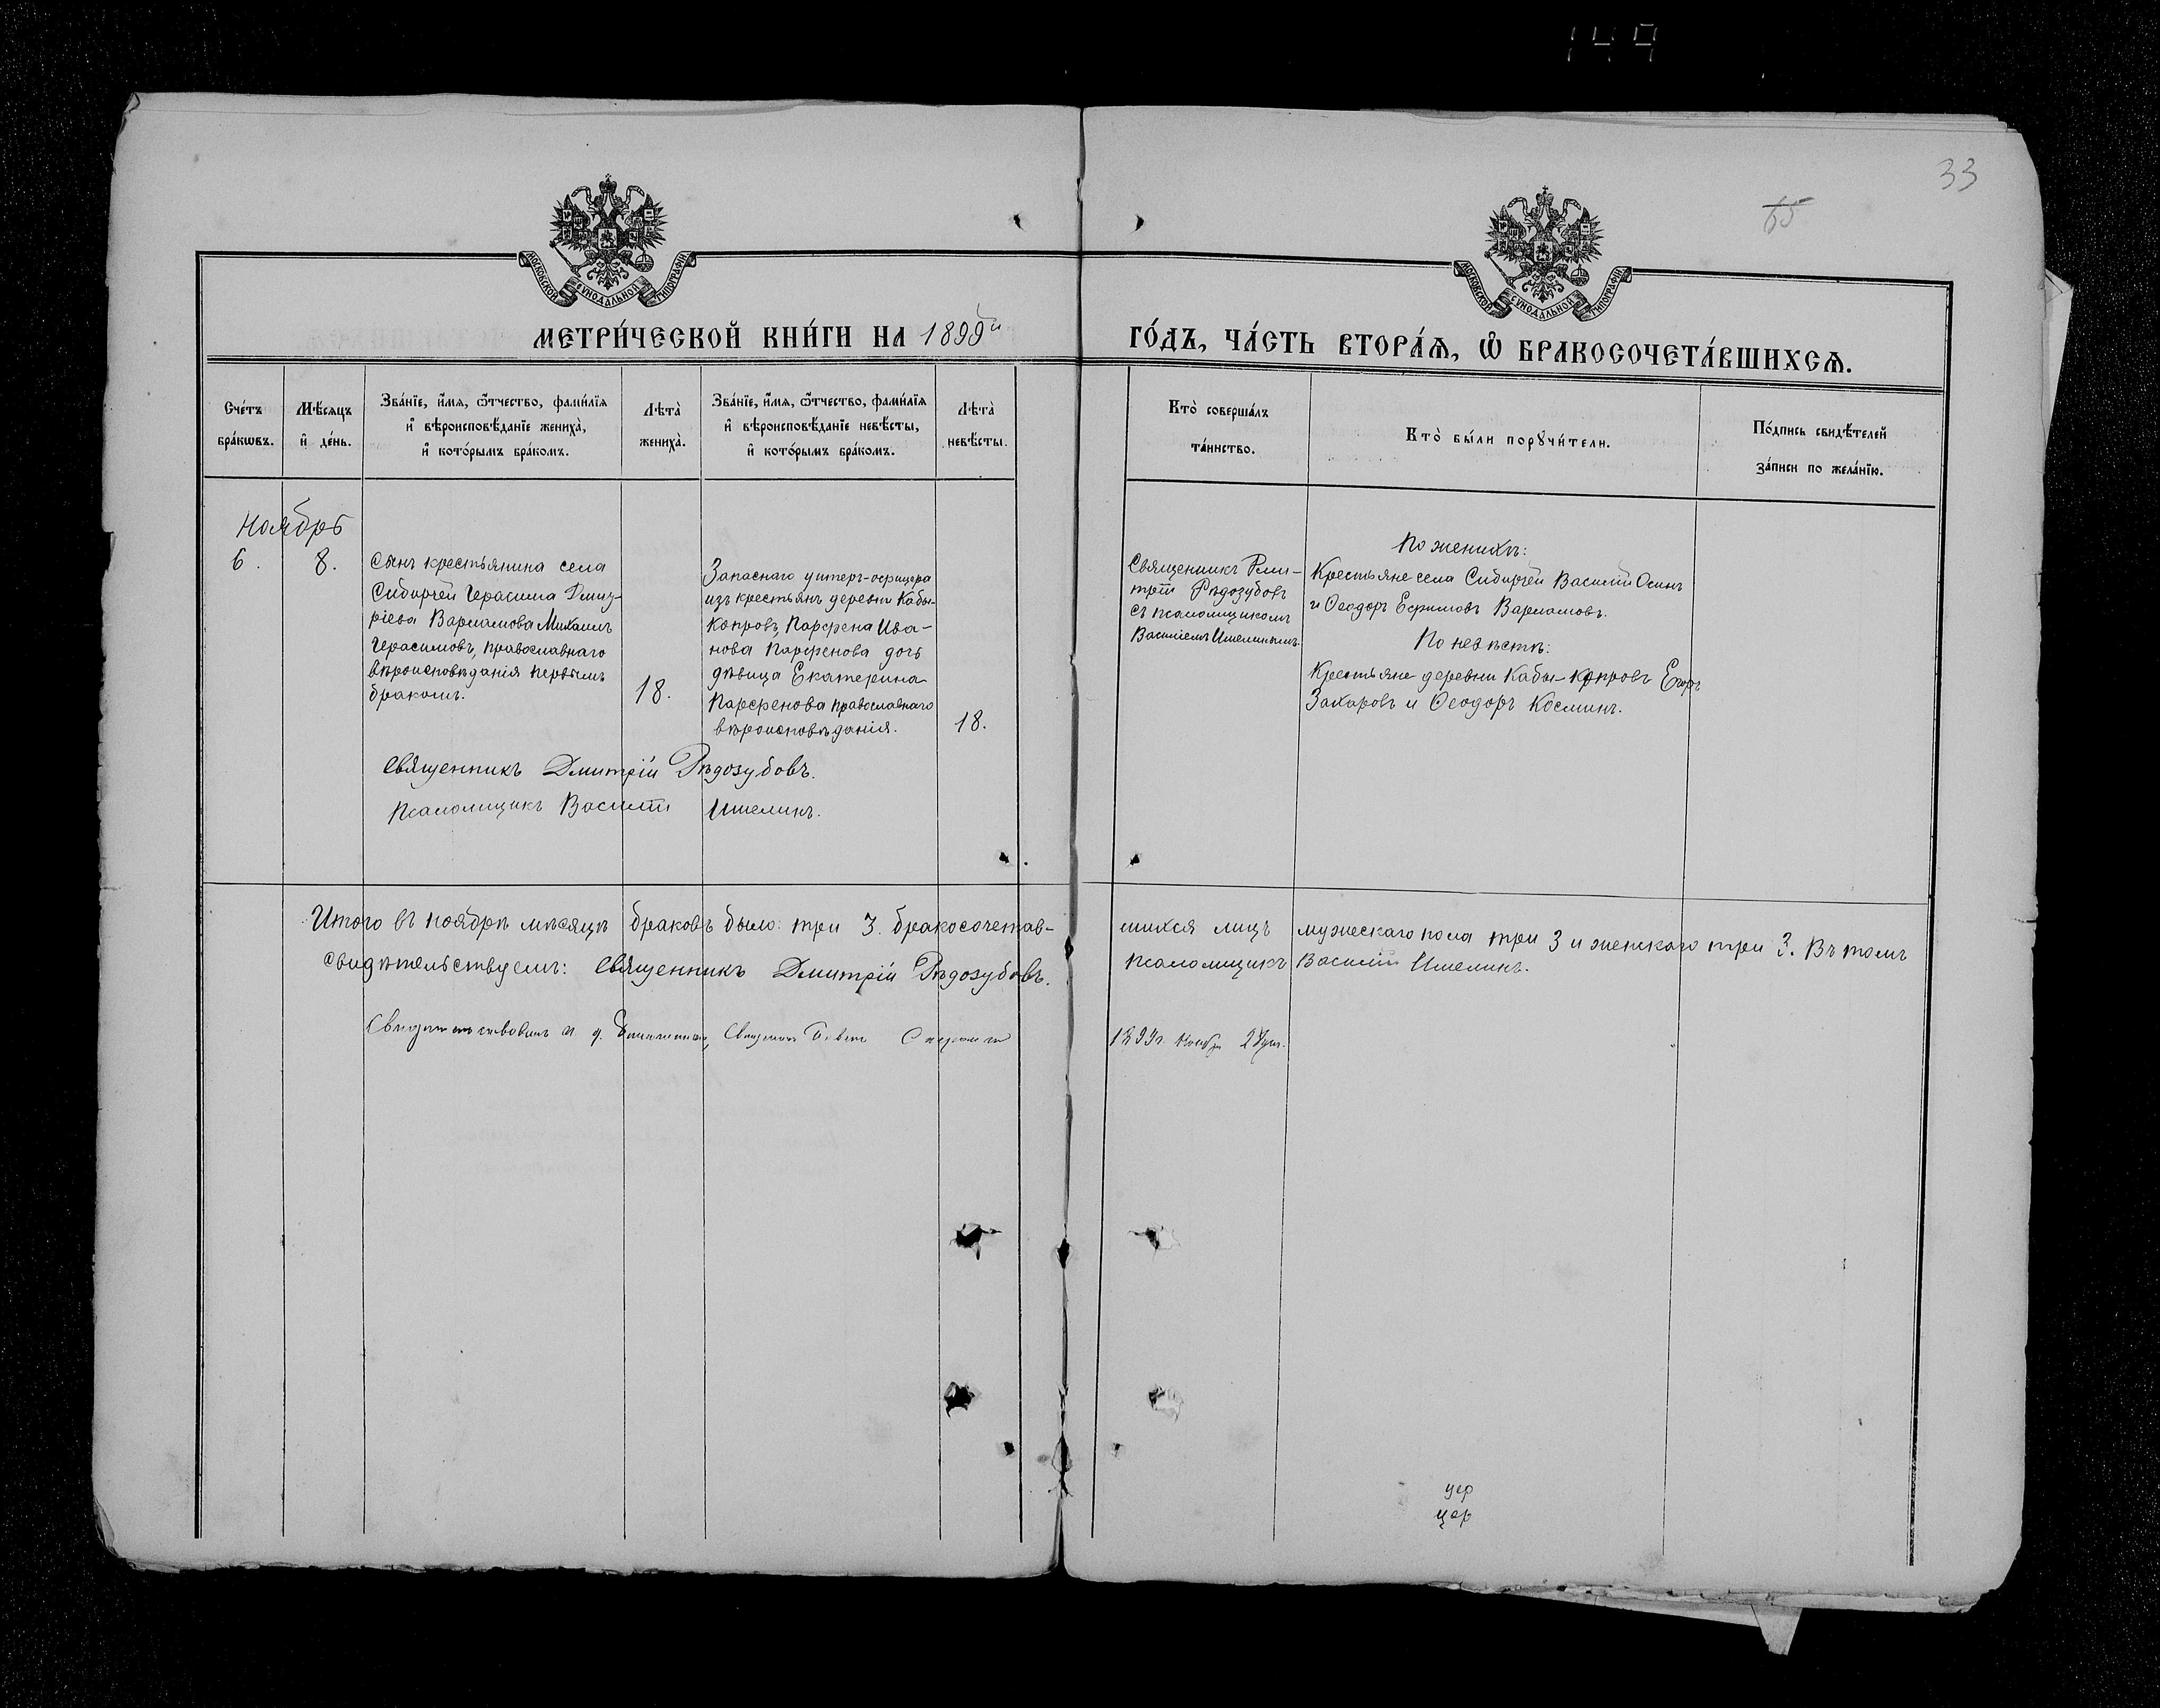 149
33
65
МОСКОВСКОЙ СѴНОДАЛЬНОЙ ТИПОГРАФІИ
МОСКОВСКОЙ СѴНОДАЛЬНОЙ ТИПОГРАФІИ
МЕТРИ́ЧЕСКОЙ КНИ́ГИ НА 1899й ГО́ДЪ, ЧА́СТЬ ВТОРА́Ѧ, Ѽ БРАКОСОЧЕТА́ВШИХСѦ.
Сче́тъ бра́кѡвъ.
Мѣ́сяцъ и҆ де́нь.
Зва́нїе, и҆́мя, ѻ҆́тчество, фами́лїя и҆ вѣроисповѣ́данїе жениха̀, и҆ кото́рымъ бра́комъ.
Лѣта̀ жениха̀.
Зва́нїе, и҆́мя, ѻ҆́тчество, фами́лїя и҆ вѣроисповѣ́данїе невѣ́сты, и҆ кото́рымъ бра́комъ.
Лѣта̀ невѣ́сты.
Кто̀ соверша́лъ та́инство.
Кто̀ бы́ли порꙋчи́тели.
По́дпись свидѣ́телей за́писи по жела́нїю.
Ноябрь
6.
8.
Сынъ крестьянина села
Сибирчей Герасима Дмит-
ріева Варламова Михаилъ
Герасимовъ, православнаго
вѣроисповѣданія первымъ
бракомъ.
18.
Запаснаго унтеръ-офицера
изъ крестьянъ деревни Кабы-
Копровъ, Парфена Ива-
нова Парфенова дочь
дѣвица Екатерина
Парфенова православнаго
вѣроисповѣданія.
18.
Священникъ Дми-
трій Рѣдозубовъ
съ псаломщикомъ
Василіемъ Ишелинымъ.
По женихѣ:
Крестьяне села Сибирчей Василій Осинъ
и Ѳеодоръ Ефимовъ Варламовъ.
По невѣстѣ:
Крестьяне деревни Кабы-Копровъ Егоръ
Захаровъ и Ѳеодоръ Косминъ.
Священникъ Дмитрій Рѣдозубовъ.
Псаломщикъ Василій Ишелинъ.
Итого въ ноябрѣ мѣсяцѣ браковъ было: три 3. бракосочетав-шихся лицъ мужескаго пола три 3 и женскаго три 3. Въ томъ
свидѣтельствуемъ: Священникъ Дмитрій Рѣдозубовъ. Псаломщикъ Василій Ишелинъ.
Свидѣтельствовалъ и. д. 1899г. Ноябр